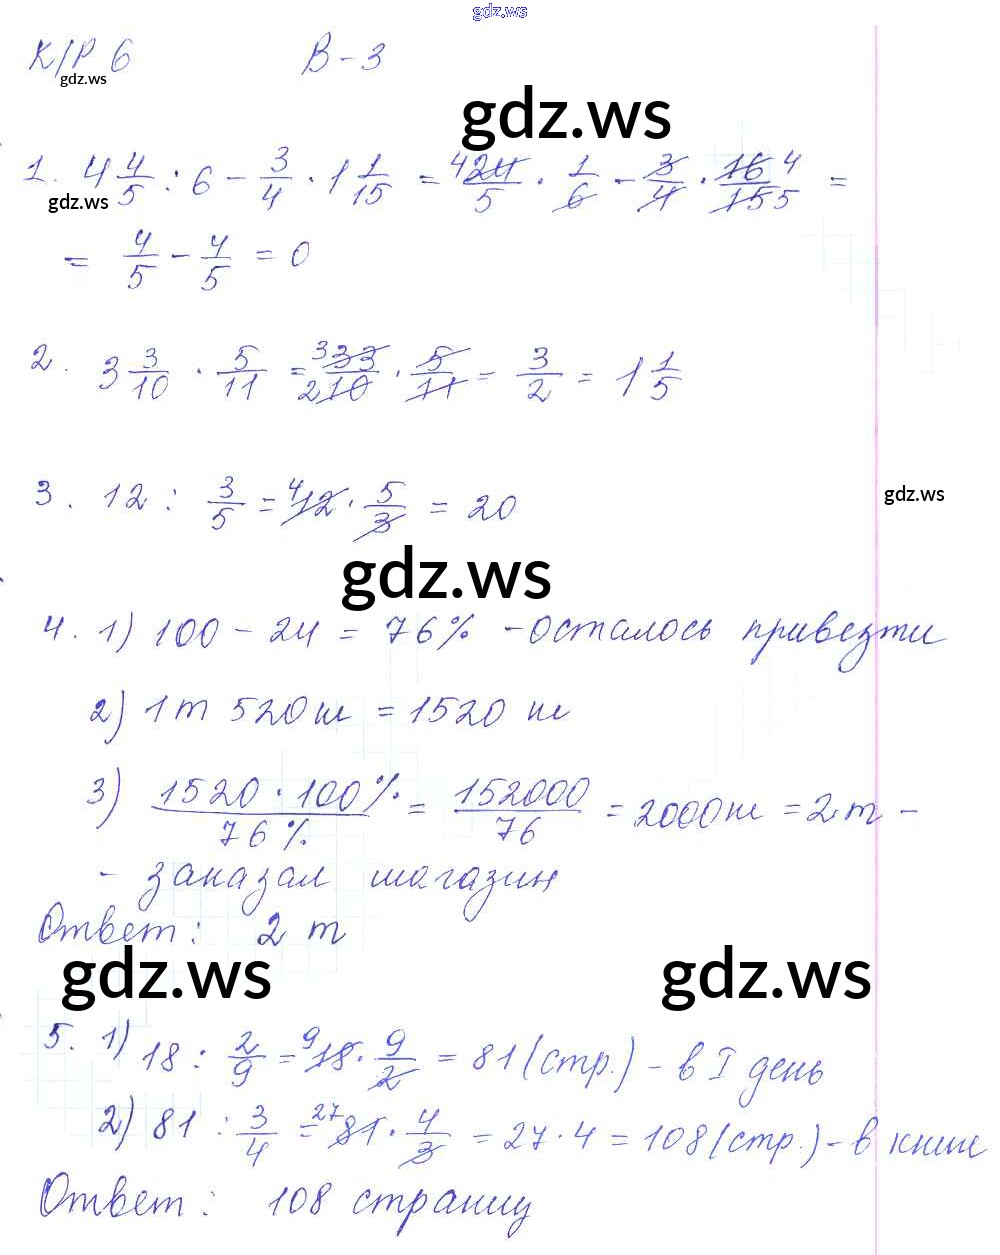 gdz.ws
К/Р 6 В-3
gdz.ws
gdz.ws
1. 4 4/5 : 6 - 3/4 · 1 1/15 = 4 24/5 · 1/6 - 3/4 · 16 4/15 5 =
gdz.ws
= 4/5 - 4/5 = 0
2. 3 3/10 · 5/11 = 3 33/2 10 · 5/11 = 3/2 = 1 1/5
3. 12 : 3/5 = 4 12 · 5/3 = 20
gdz.ws
gdz.ws
4. 1) 100 - 24 = 76% - осталось привезти
2) 1 т 520 кг = 1520 кг
3) 1520 · 100%/76% = 152000/76 = 2000 кг = 2 т -
- заказал магазин
Ответ: 2 т
gdz.ws gdz.ws
5. 1) 18 : 2/9 = 9 18 · 9/2 = 81 (стр.) - в I день
2) 81 : 3/4 = 27 81 · 4/3 = 27 · 4 = 108 (стр.) - в книге
Ответ: 108 страниц